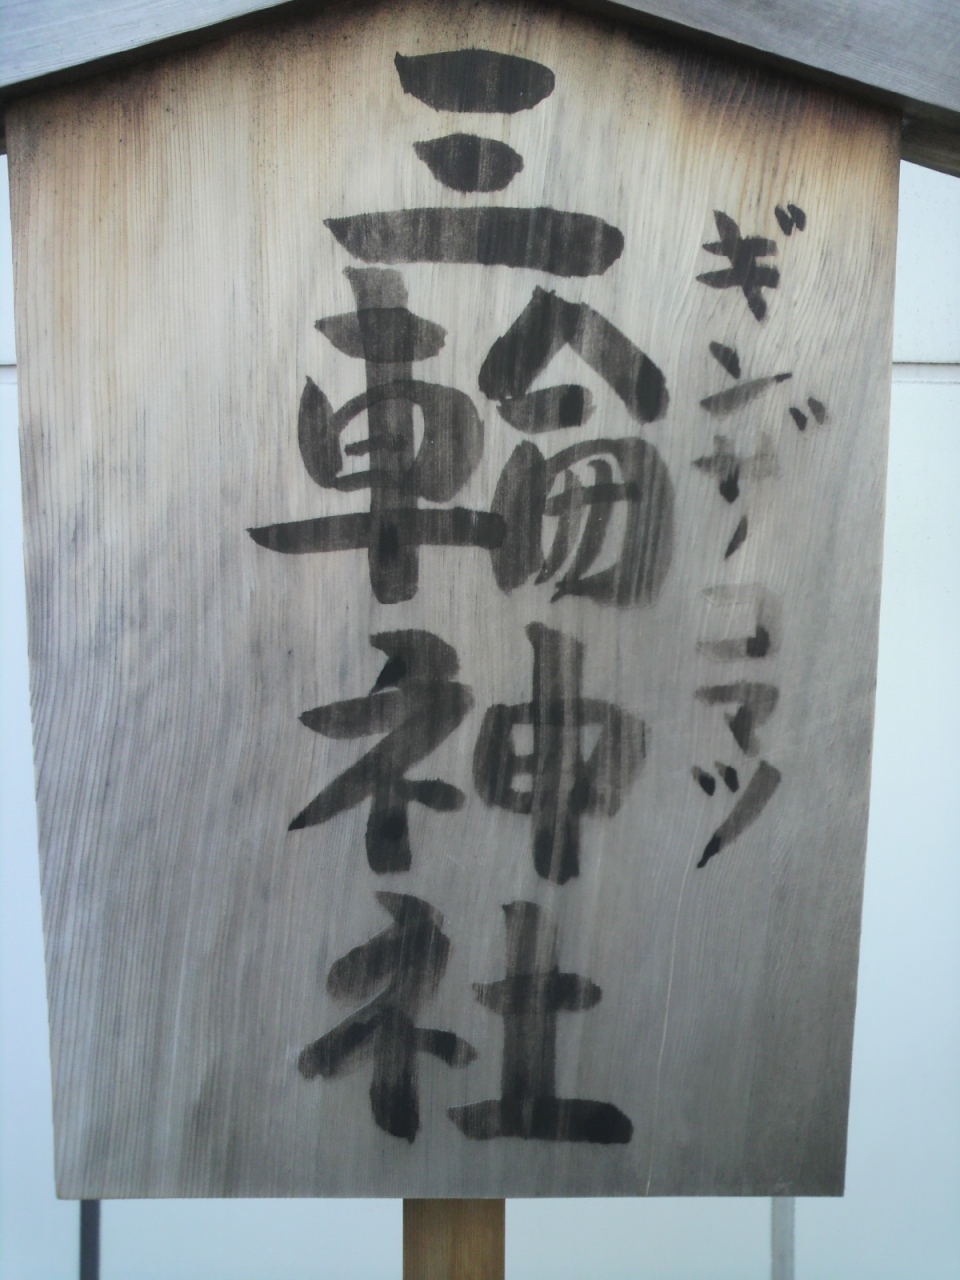 ギンザ・コマツ
三輪神社